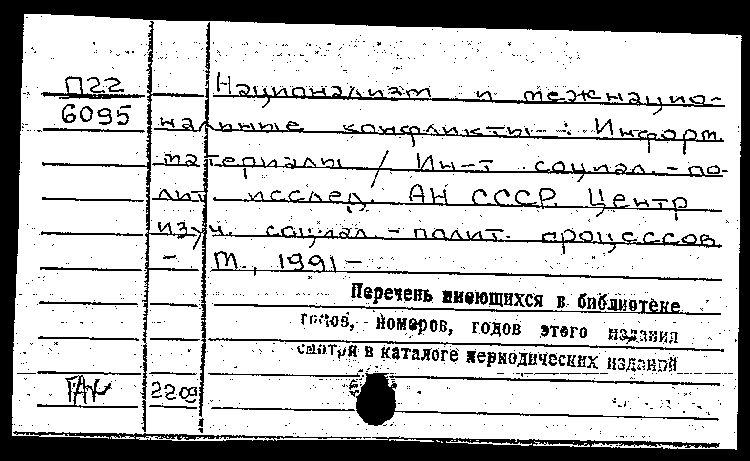 П22
6095
Национализм и межнацио-
нальные конфликты : Информ.
материалы / Ин-т социал.-по-
лит. исслед. АН СССР. Центр
изуч. социал.-полит. процессов
- М., 1991 -
Перечень имеющихся в библиотеке
томов, номеров, годов этого издания
смотри в каталоге периодических изданий
2209